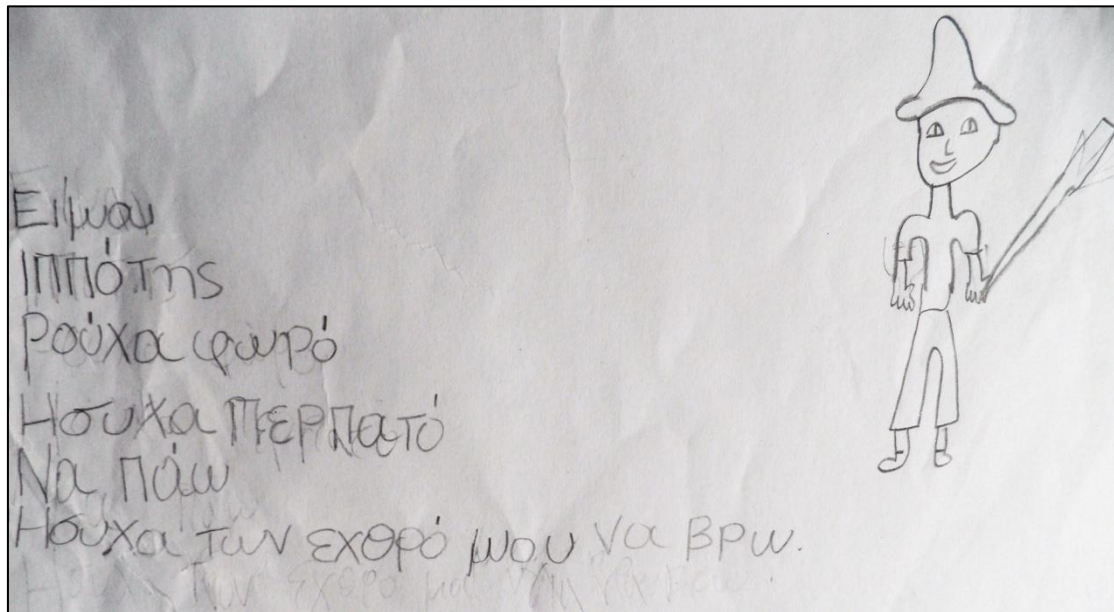 Ειμαι
Ιππότης
Ρούχα φωρό
Ησυχα περπατό
Να πάω
Ησυχα των εχθρό μου να βρω.